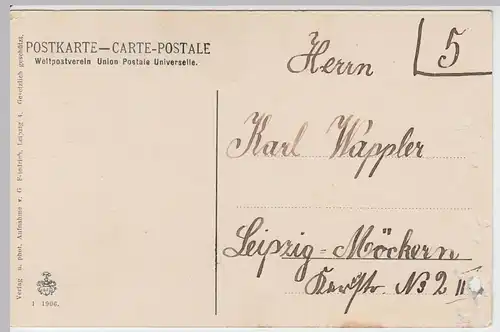 POSTKARTE—CARTE-POSTALE
Weltpostverein Union Postale Universelle.
Verlag u. phot. Aufnahme v. G. Friedrich, Leipzig 4. Gesetzlich geschützt.
1 1906.
5
Herrn
Karl Wappler
Leipzig-Möckern
No 2 II